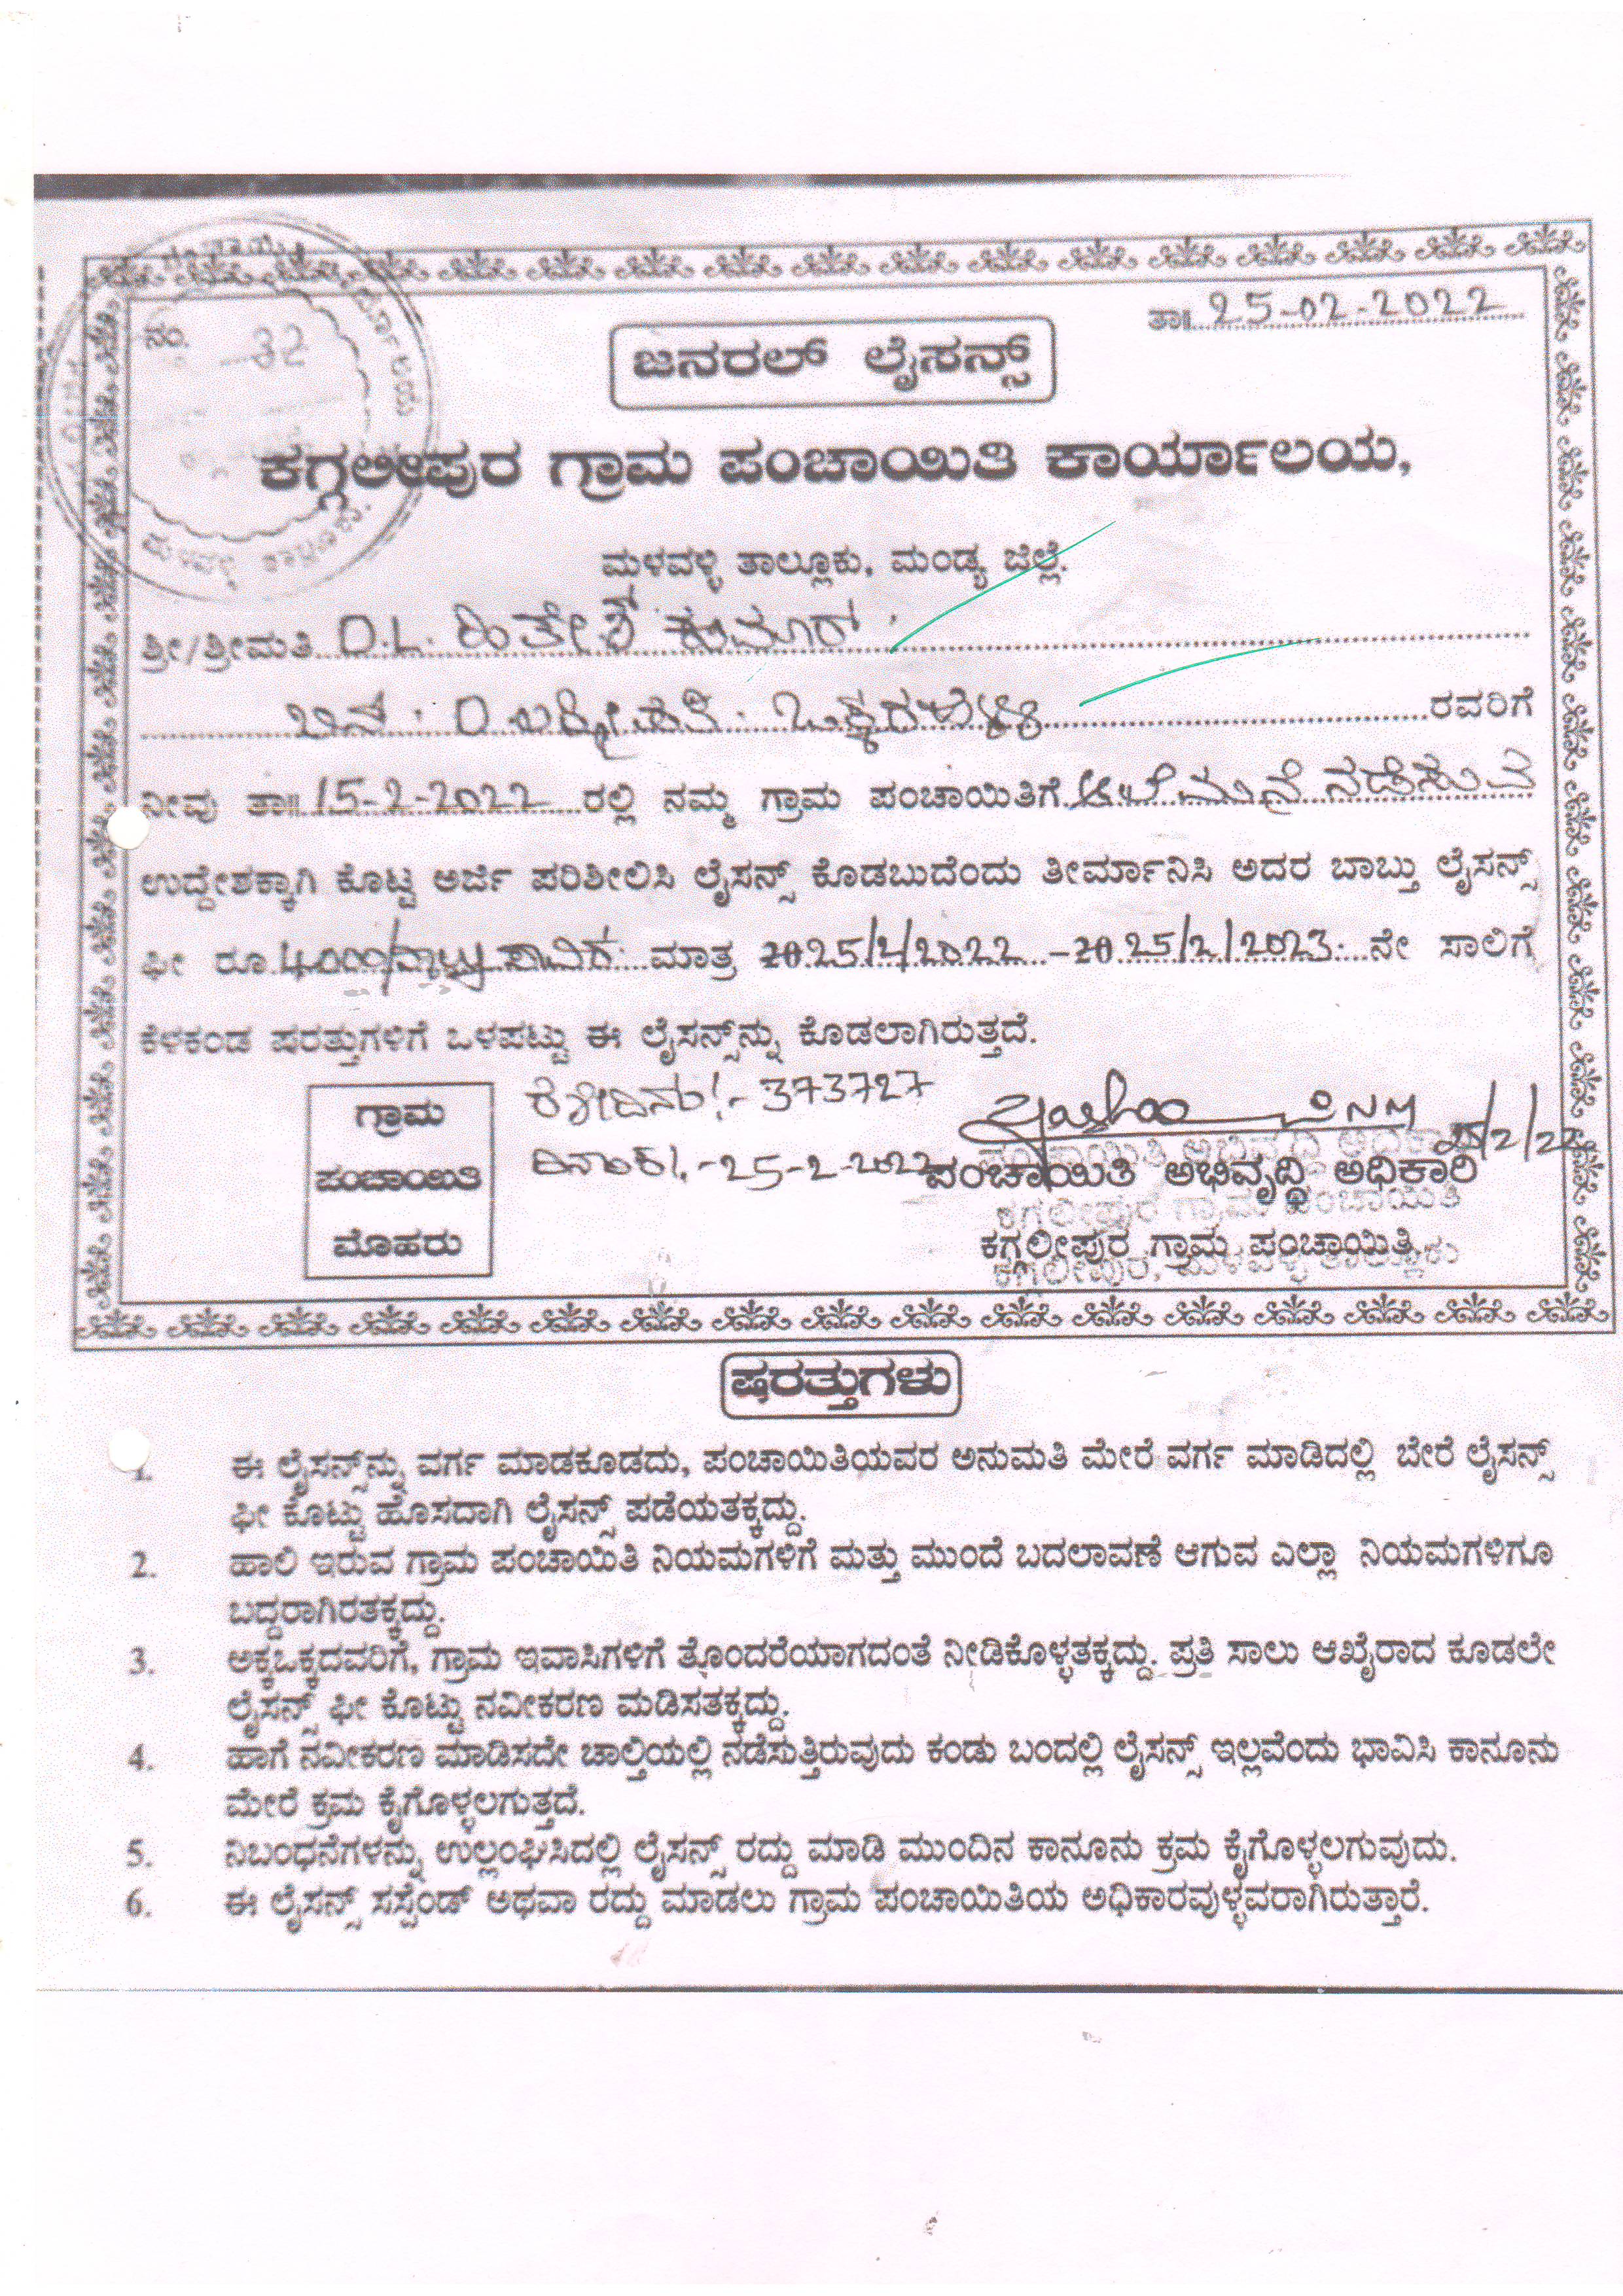 ನಂ. 32
ತಾ॥ 25-02-2022
ಜನರಲ್ ಲೈಸನ್ಸ್
ಕಗ್ಗಲೀಪುರ ಗ್ರಾಮ ಪಂಚಾಯಿತಿ ಕಾರ್ಯಾಲಯ,
ಮಳವಳ್ಳಿ ತಾಲ್ಲೂಕು, ಮಂಡ್ಯ ಜಿಲ್ಲೆ.
ಶ್ರೀ/ಶ್ರೀಮತಿ D.L. ಹಿತೇಶ್ ಕುಮಾರ್
ಬಿನ್ D ಲಕ್ಷ್ಮೀಪತಿ ರವರಿಗೆ
ನೀವು ತಾ॥ 15-2-2022 ರಲ್ಲಿ ನಮ್ಮ ಗ್ರಾಮ ಪಂಚಾಯಿತಿಗೆ ಆಲೆಮನೆ ನಡೆಸುವ
ಉದ್ದೇಶಕ್ಕಾಗಿ ಕೊಟ್ಟ ಅರ್ಜಿ ಪರಿಶೀಲಿಸಿ ಲೈಸನ್ಸ್ ಕೊಡಬುದೆಂದು ತೀರ್ಮಾನಿಸಿ ಅದರ ಬಾಬ್ತು ಲೈಸನ್ಸ್
ಫೀ ರೂ 4000/ನಾಲ್ಕು ಸಾವಿರ ಮಾತ್ರ 2025/2/2022 -2025/2/2023 ನೇ ಸಾಲಿಗೆ
ಕೆಳಕಂಡ ಷರತ್ತುಗಳಿಗೆ ಒಳಪಟ್ಟು ಈ ಲೈಸನ್ಸ್‌ನ್ನು ಕೊಡಲಾಗಿರುತ್ತದೆ.
ಗ್ರಾಮ
ಪಂಚಾಯಿತಿ
ಮೊಹರು
373727
25-2-2022
25/2/22
ಪಂಚಾಯಿತಿ ಅಭಿವೃದ್ಧಿ ಅಧಿಕಾರಿ
ಕಗ್ಗಲೀಪುರ ಗ್ರಾಮ ಪಂಚಾಯಿತಿ
ಷರತ್ತುಗಳು
1. ಈ ಲೈಸನ್ಸ್‌ನ್ನು ವರ್ಗ ಮಾಡಕೂಡದು, ಪಂಚಾಯಿತಿಯವರ ಅನುಮತಿ ಮೇರೆ ವರ್ಗ ಮಾಡಿದಲ್ಲಿ ಬೇರೆ ಲೈಸನ್ಸ್
ಫೀ ಕೊಟ್ಟು ಹೊಸದಾಗಿ ಲೈಸನ್ಸ್ ಪಡೆಯತಕ್ಕದ್ದು.
2. ಹಾಲಿ ಇರುವ ಗ್ರಾಮ ಪಂಚಾಯಿತಿ ನಿಯಮಗಳಿಗೆ ಮತ್ತು ಮುಂದೆ ಬದಲಾವಣೆ ಆಗುವ ಎಲ್ಲಾ ನಿಯಮಗಳಿಗೂ
ಬದ್ದರಾಗಿರತಕ್ಕದ್ದು.
3. ಅಕ್ಕಒಕ್ಕದವರಿಗೆ, ಗ್ರಾಮ ಇವಾಸಿಗಳಿಗೆ ತೊಂದರೆಯಾಗದಂತೆ ನೀಡಿಕೊಳ್ಳತಕ್ಕದ್ದು. ಪ್ರತಿ ಸಾಲು ಆಖೈರಾದ ಕೂಡಲೇ
ಲೈಸನ್ಸ್ ಫೀ ಕೊಟ್ಟು ನವೀಕರಣ ಮಡಿಸತಕ್ಕದ್ದು.
4. ಹಾಗೆ ನವೀಕರಣ ಮಾಡಿಸದೇ ಚಾಲ್ತಿಯಲ್ಲಿ ನಡೆಸುತ್ತಿರುವುದು ಕಂಡು ಬಂದಲ್ಲಿ ಲೈಸನ್ಸ್ ಇಲ್ಲವೆಂದು ಭಾವಿಸಿ ಕಾನೂನು
ಮೇರೆ ಕ್ರಮ ಕೈಗೊಳ್ಳಲಗುತ್ತದೆ.
5. ನಿಬಂಧನೆಗಳನ್ನು ಉಲ್ಲಂಘಿಸಿದಲ್ಲಿ ಲೈಸನ್ಸ್ ರದ್ದು ಮಾಡಿ ಮುಂದಿನ ಕಾನೂನು ಕ್ರಮ ಕೈಗೊಳ್ಳಲಗುವುದು.
6. ಈ ಲೈಸನ್ಸ್ ಸಸ್ಪೆಂಡ್ ಅಥವಾ ರದ್ದು ಮಾಡಲು ಗ್ರಾಮ ಪಂಚಾಯಿತಿಯ ಅಧಿಕಾರವುಳ್ಳವರಾಗಿರುತ್ತಾರೆ.